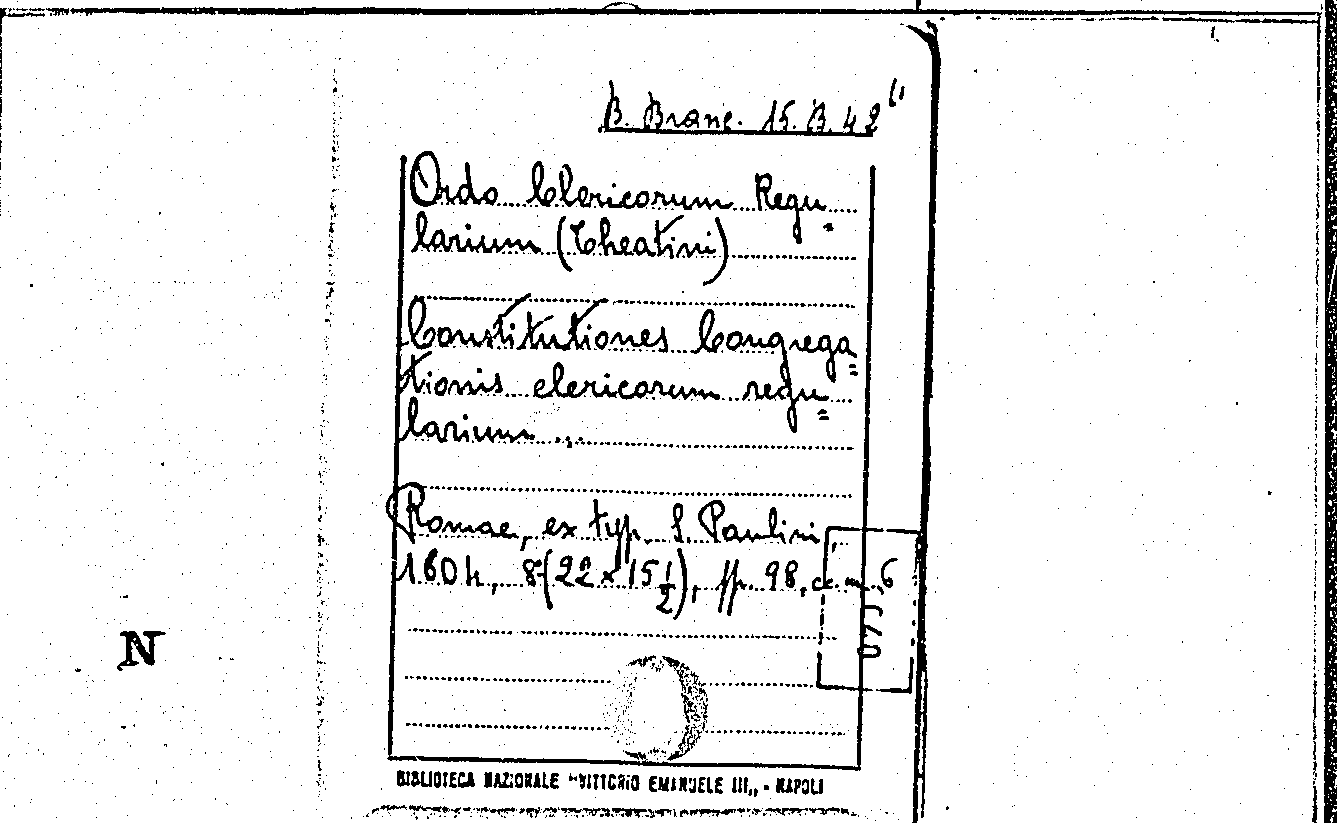 B. Branc. 15. B. 42
Ordo Clericorum Regu=
larium (Theatini)
Constitutiones Congrega=
tionis clericorum regu=
larium ...
Romae, ex typ. S. Paulini,
1604, 8°(22 x 15 1/2), pp. 98, cc. n. 6
N
BIBLIOTECA NAZIONALE "VITTORIO EMANUELE III„ - NAPOLI